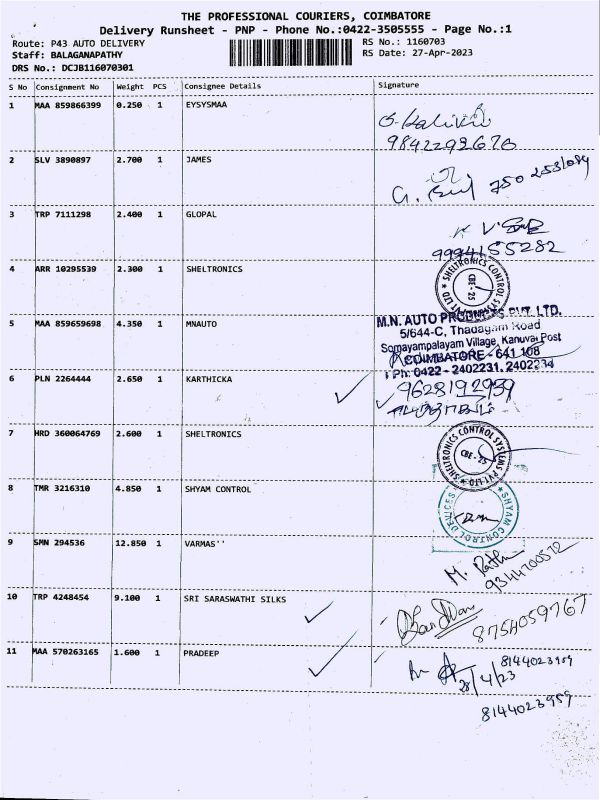 THE PROFESSIONAL COURIERS, COIMBATORE
Delivery Runsheet - PNP - Phone No.:0422-3505555 - Page No.:1
Route: P43 AUTO DELIVERY RS No.: 1160703
Staff: BALAGANAPATHY RS Date: 27-Apr-2023
DRS No.: DCJB116070301
S No Consignment No Weight PCS Consignee Details Signature
1 MAA 859866399 0.250 1 EYSYSMAA
9842292670
2 SLV 3890897 2.700 1 JAMES
3 TRP 7111298 2.400 1 GLOPAL
9994155282
4 ARR 10295539 2.300 1 SHELTRONICS
SHELTRONICS CONTROL SYSTEMS PVT LTD
CBE-25
5 MAA 859659698 4.350 1 MNAUTO
M.N. AUTO PRODUCTS PVT. LTD.
5/644-C, Thadagam Road
Somayampalayam Village, Kanuvai Post
COIMBATORE - 641 108
Ph: 0422 - 2402231, 2402234
6 PLN 2264444 2.650 1 KARTHICKA
9628192959
7 HRD 360064769 2.600 1 SHELTRONICS
SHELTRONICS CONTROL SYSTEMS PVT LTD
CBE-25
8 TMR 3216310 4.850 1 SHYAM CONTROL
SHYAM CONTROL DEVICES
9 SMN 294536 12.850 1 VARMAS''
9344700572
10 TRP 4248454 9.100 1 SRI SARASWATHI SILKS
8754059767
11 MAA 570263165 1.600 1 PRADEEP
8144023959
28/4/23
8144023959